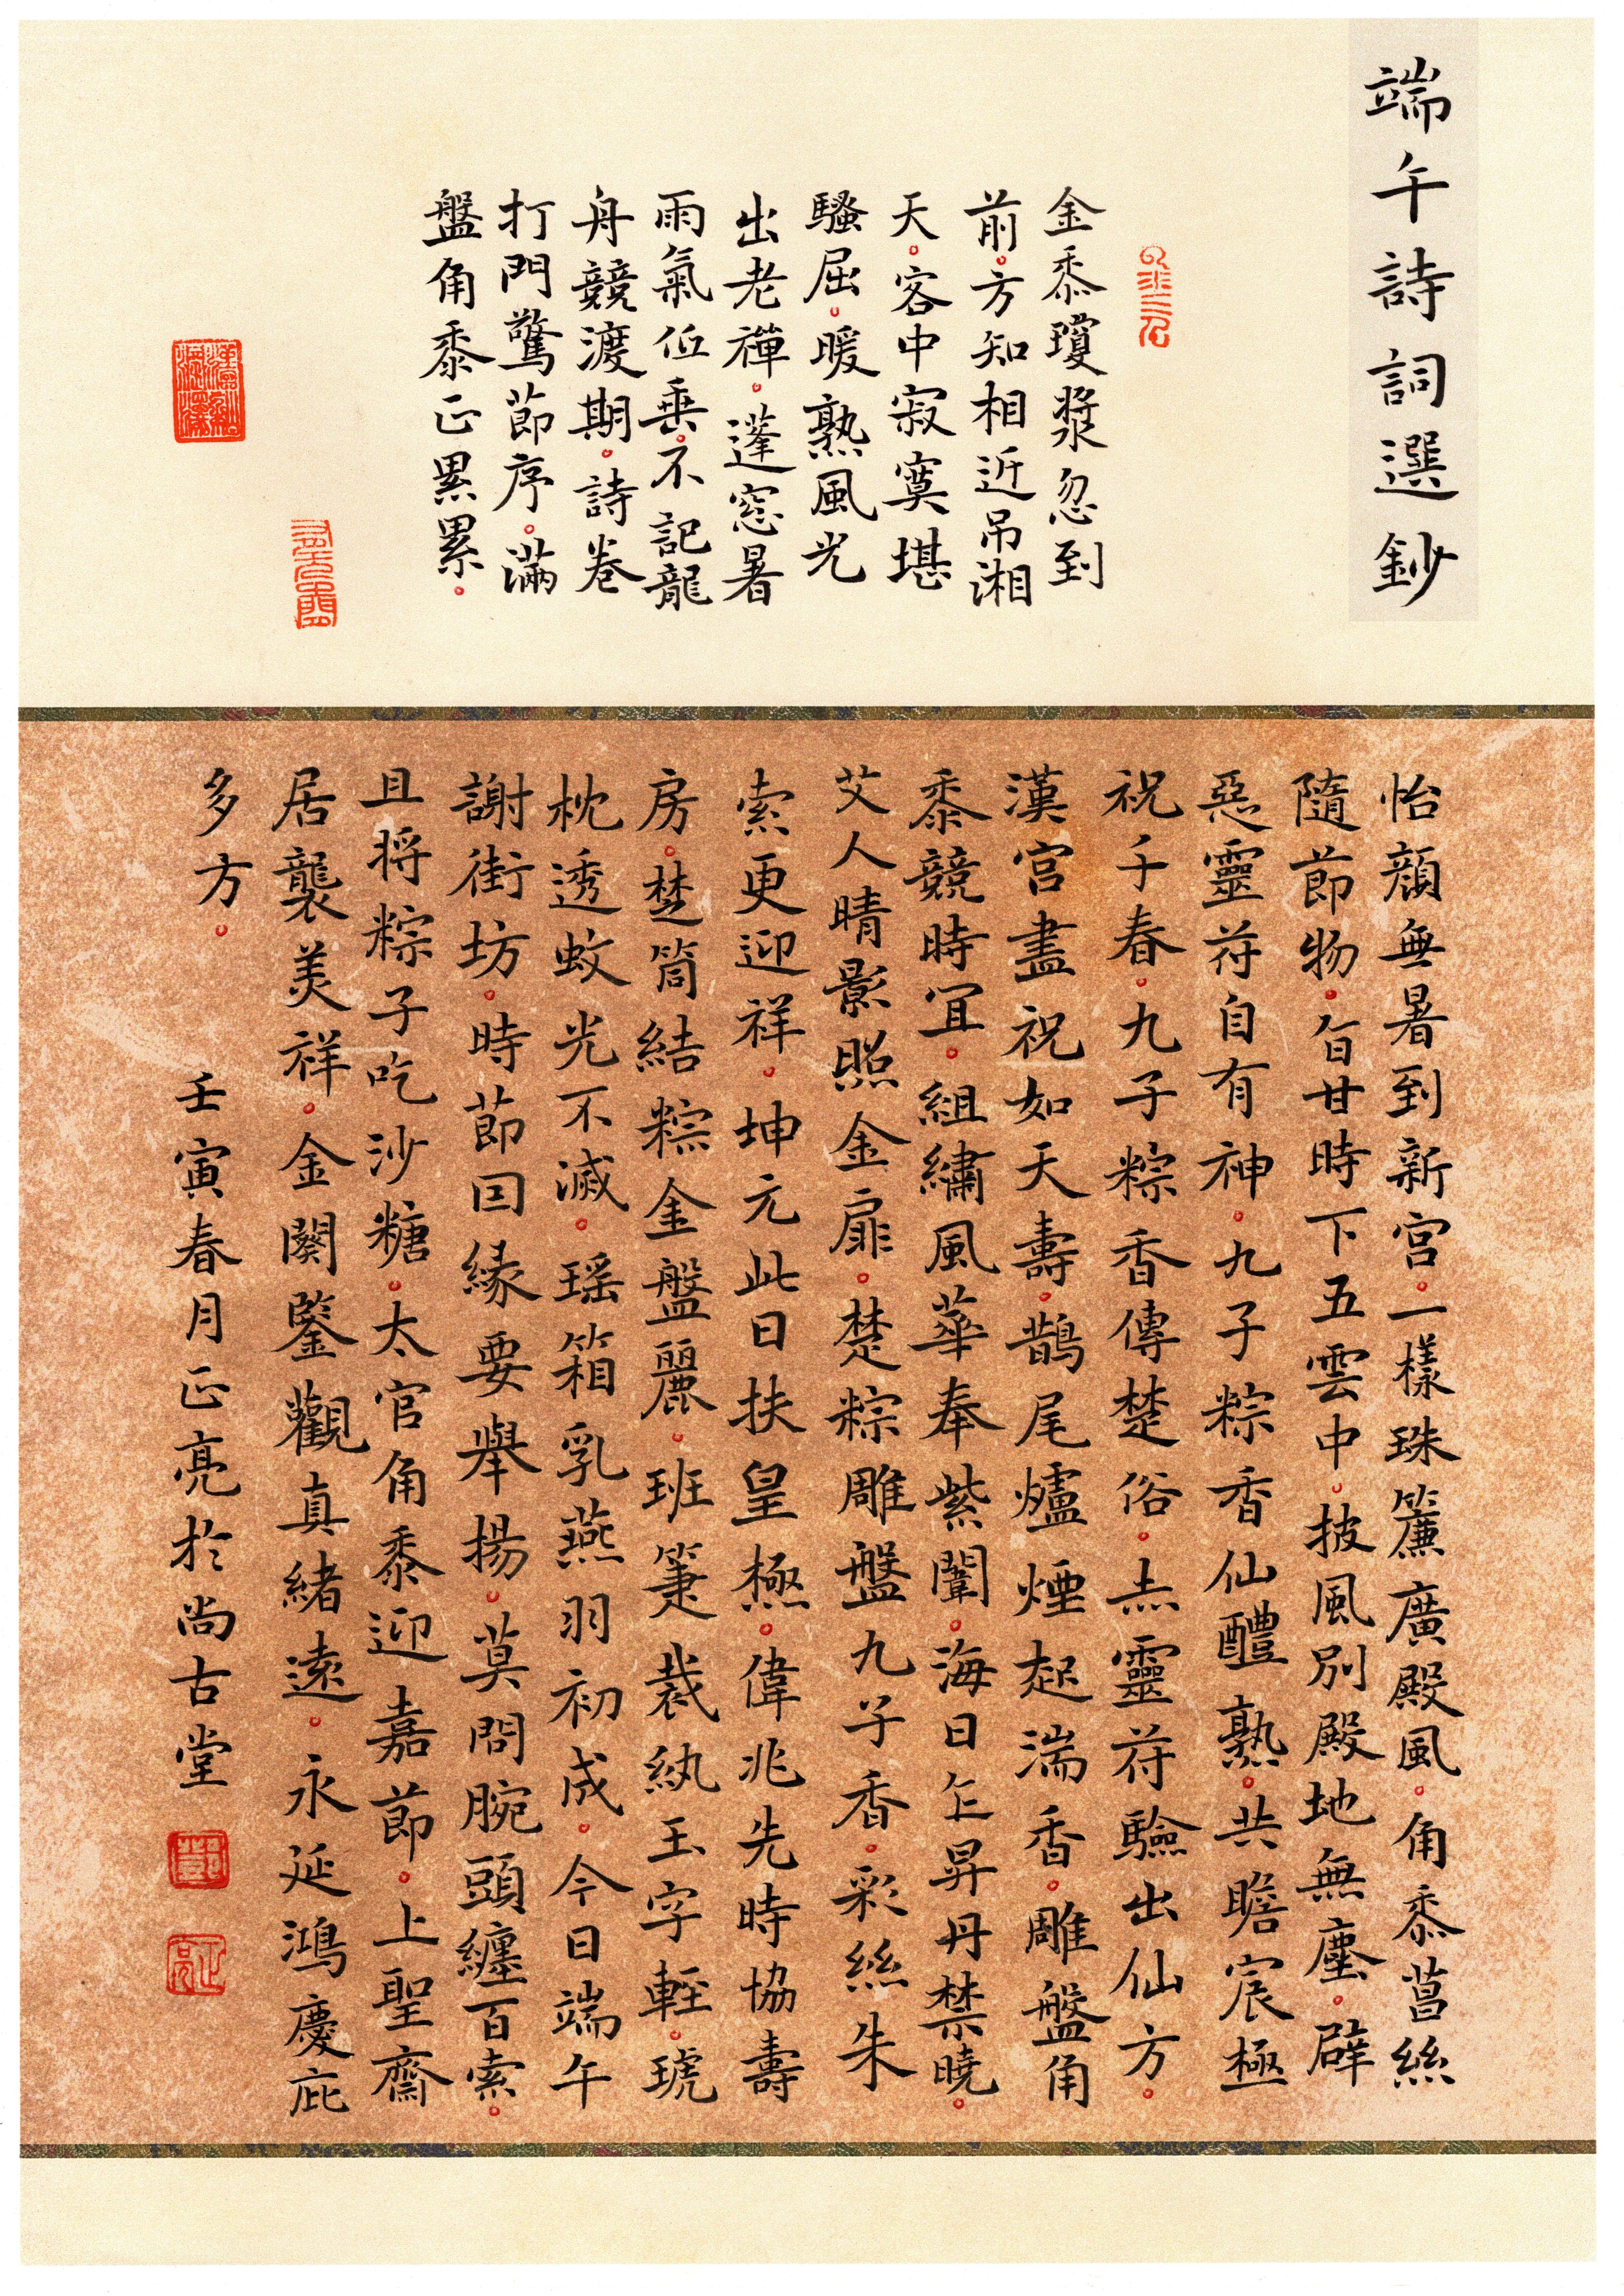 端午詩詞選鈔
金黍瓊漿忽到
前。方知相近吊湘
天。客中寂寞堪
騷屈。暖熟風光
出老禪。蓬窓暑
雨氣低垂。不記龍
舟競渡期。詩卷
打門驚節序。滿
盤角黍正累累。
怡顏無暑到新宮。一樣珠簾廣殿風。角黍菖絲
隨節物。旨甘時下五雲中。披風別殿地無塵。辟
惡靈符自有神。九子粽香仙醴熟。共瞻宸極
祝千春。九子粽香傳楚俗。赤靈符驗出仙方。
漢宮盡祝如天壽。鵲尾爐煙起湍香。雕盤角
黍競時宜。組繡風華奉紫闈。海日乍昇丹禁曉。
艾人晴影照金扉。楚粽雕盤九子香。彩絲朱
索更迎祥。坤元此日扶皇極。偉兆先時協壽
房。楚筒結粽金盤麗。班箑裁紈玉字輕。琥
枕透蚊光不滅。瑶箱乳燕羽初成。今日端午
謝街坊。時節因緣要舉揚。莫問腕頭纏百索。
且將粽子吃沙糖。太官角黍迎嘉節。上聖齋
居襲美祥。金闋鑒觀真緒遠。永延鴻慶庇
多方。
壬寅春月正亮於尚古堂
鄧
正亮